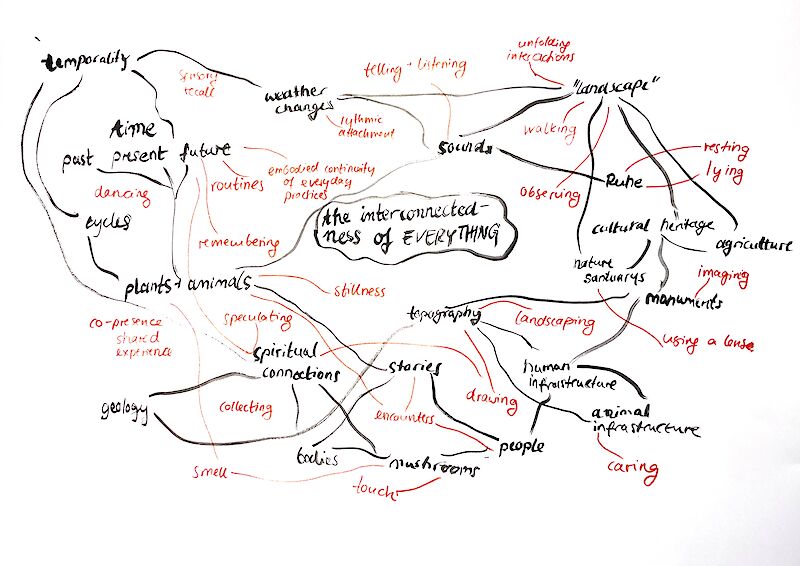 temporality
telling + listening
unfolding
interactions
sensory
recall
weather
changes
"landscape"
rythmic
attachment
walking
time
past present future
sounds
resting
lying
Ruhe
observing
dancing
routines
embodied continuity
of everyday
practices
cycles
the interconnected-
ness of EVERYTHING
cultural heritage
agriculture
remembering
nature
sanctuarys
imaging
plants + animals
stillness
monuments
co-presence
shared
experience
speculating
topography
landscaping
using a lense
spiritual
connections
stories
human
infrastructure
geology
collecting
encounters
drawing
animal
infrastructure
bodies
mushrooms
people
smell
touch
caring